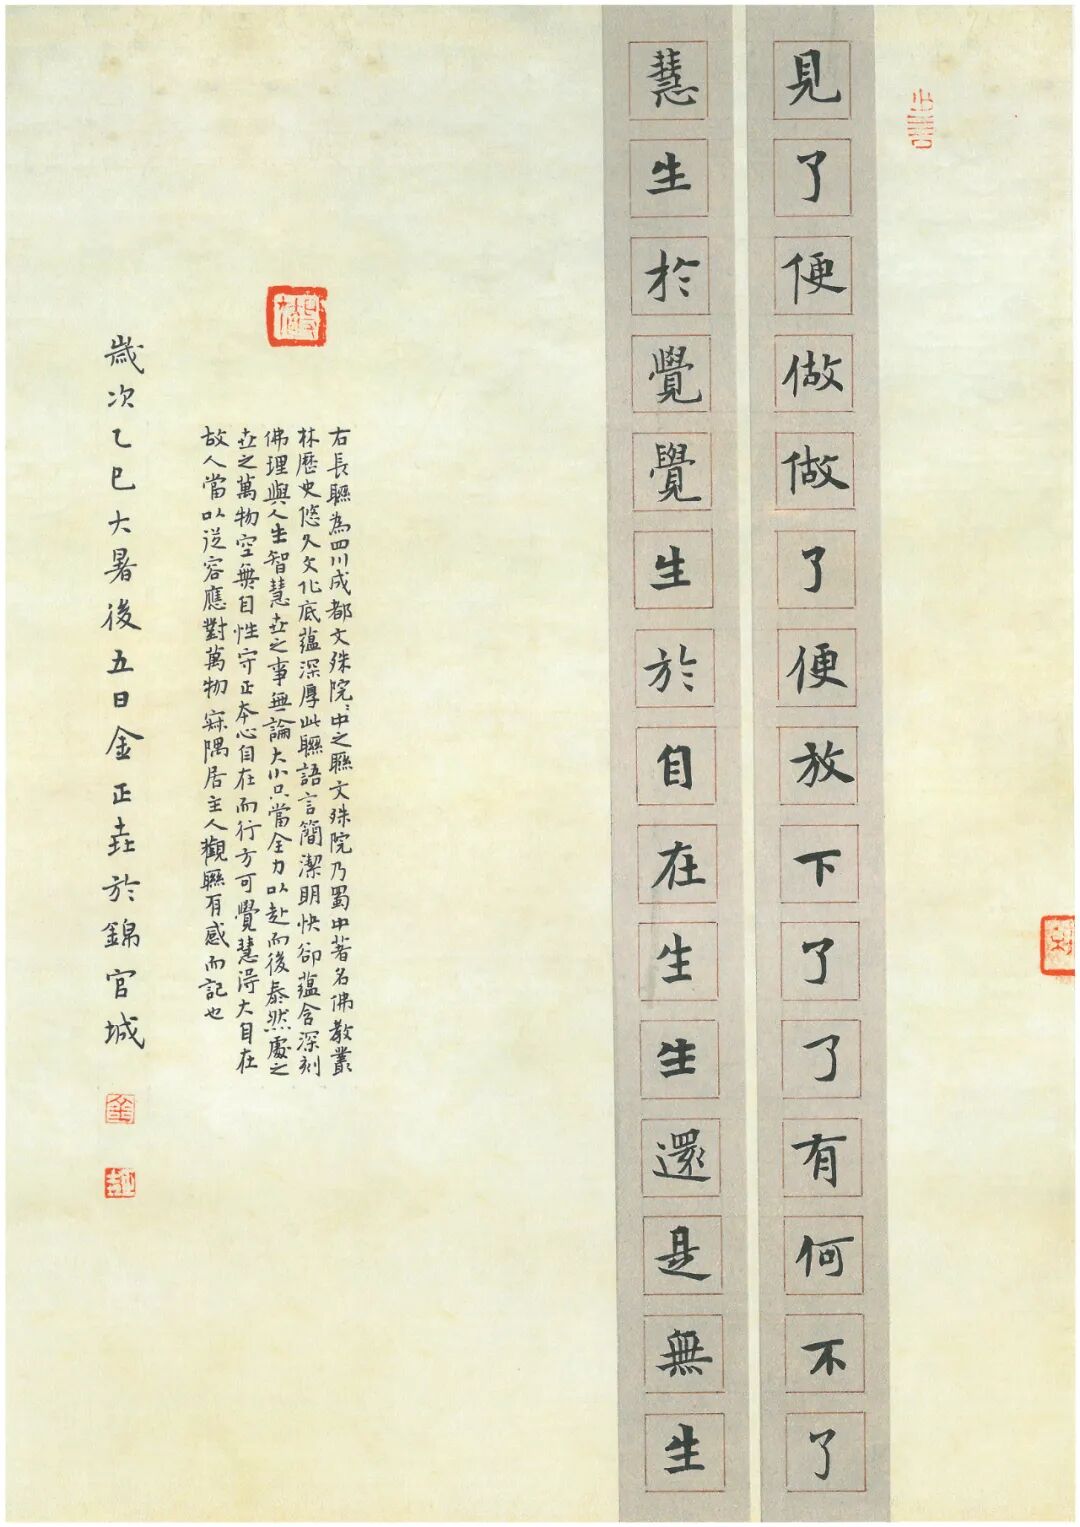 見了便做做了便放下了了有何不了
慧生於覺覺生於自在生生還是無生
右長聯為四川成都文殊院中之聯文殊院乃蜀中著名佛教叢
林歷史悠久文化底蘊深厚此聯語言簡潔明快卻蘊含深刻
佛理與人生智慧世之事無論大小只當全力以赴而後泰然處之
世之萬物空無自性守正本心自在而行方可覺慧得大自在
故人當以從容應對萬物寐隅居主人觀聯有感而記也
歲次乙巳大暑後五日金正垚於錦官城